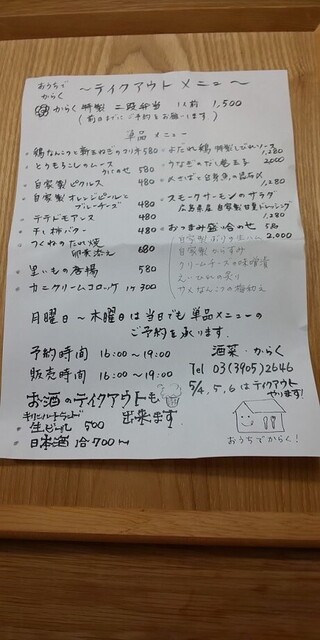 おうちで
からく
～テイクアウト メニュー～
からく特製 二段弁当 1人前 1,500
(前日までにご予約をお願いします)
単品 メニュー
・鶏なんこつと新玉ねぎのマリネ 580
・とうもろこしのムース
うにのせ 580
・自家製ピクルス 480
・自家製オレンジピールと
ブルーチーズ 480
・テテドモアンス 480
・干し柿バター 480
・つくねのたれ焼
卵黄添え 680
・里いもの唐揚 580
・カニクリームコロッケ 1ケ 300
・よだれ鶏 特製しびれソース 1,280
・うなぎのだし巻玉子 2,000
1,280
・スモークサーモンのサラダ
広島県産 自家製甘夏ドレッシング
1,280
・おつまみ盛り合わせ
2,000
自家製からすみ
クリームチーズの味噌漬
えいひれの炙り
やくなんこつの梅和え
月曜日～木曜日は当日でも単品メニューの
ご予約を承ります.
予約時間 16:00～19:00
販売時間 16:00～19:00
酒菜・からく
Tel 03(3905)2646
5/4,5,6はテイクアウト
やります!
お酒のテイクアウトも
出来ます
キリンハートランド
生ビール 500
日本酒 1合 700～
おうちでからく!